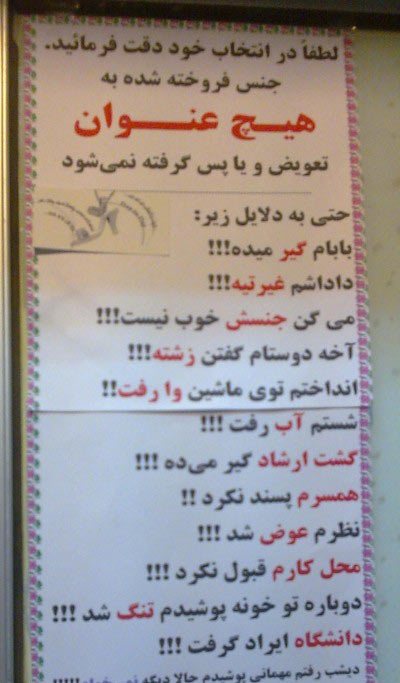 لطفاً در انتخاب خود دقت فرمائید.
جنس فروخته شده به
هیــچ عنـــوان
تعویض و یا پس گرفته نمی‌شود
حتی به دلایل زیر:
بابام گیر میده!!!
داداشم غیرتیه!!!
می گن جنسش خوب نیست!!!
آخه دوستام گفتن زشته!!!
انداختم توی ماشین وا رفت!!
شستم آب رفت !!!
گشت ارشاد گیر می‌ده !!!
همسرم پسند نکرد !!
نظرم عوض شد !!!
محل کارم قبول نکرد !!!
دوباره تو خونه پوشیدم تنگ شد !!!
دانشگاه ایراد گرفت !!!
دیشب رفتم مهمانی پوشیدم حالا دیگه